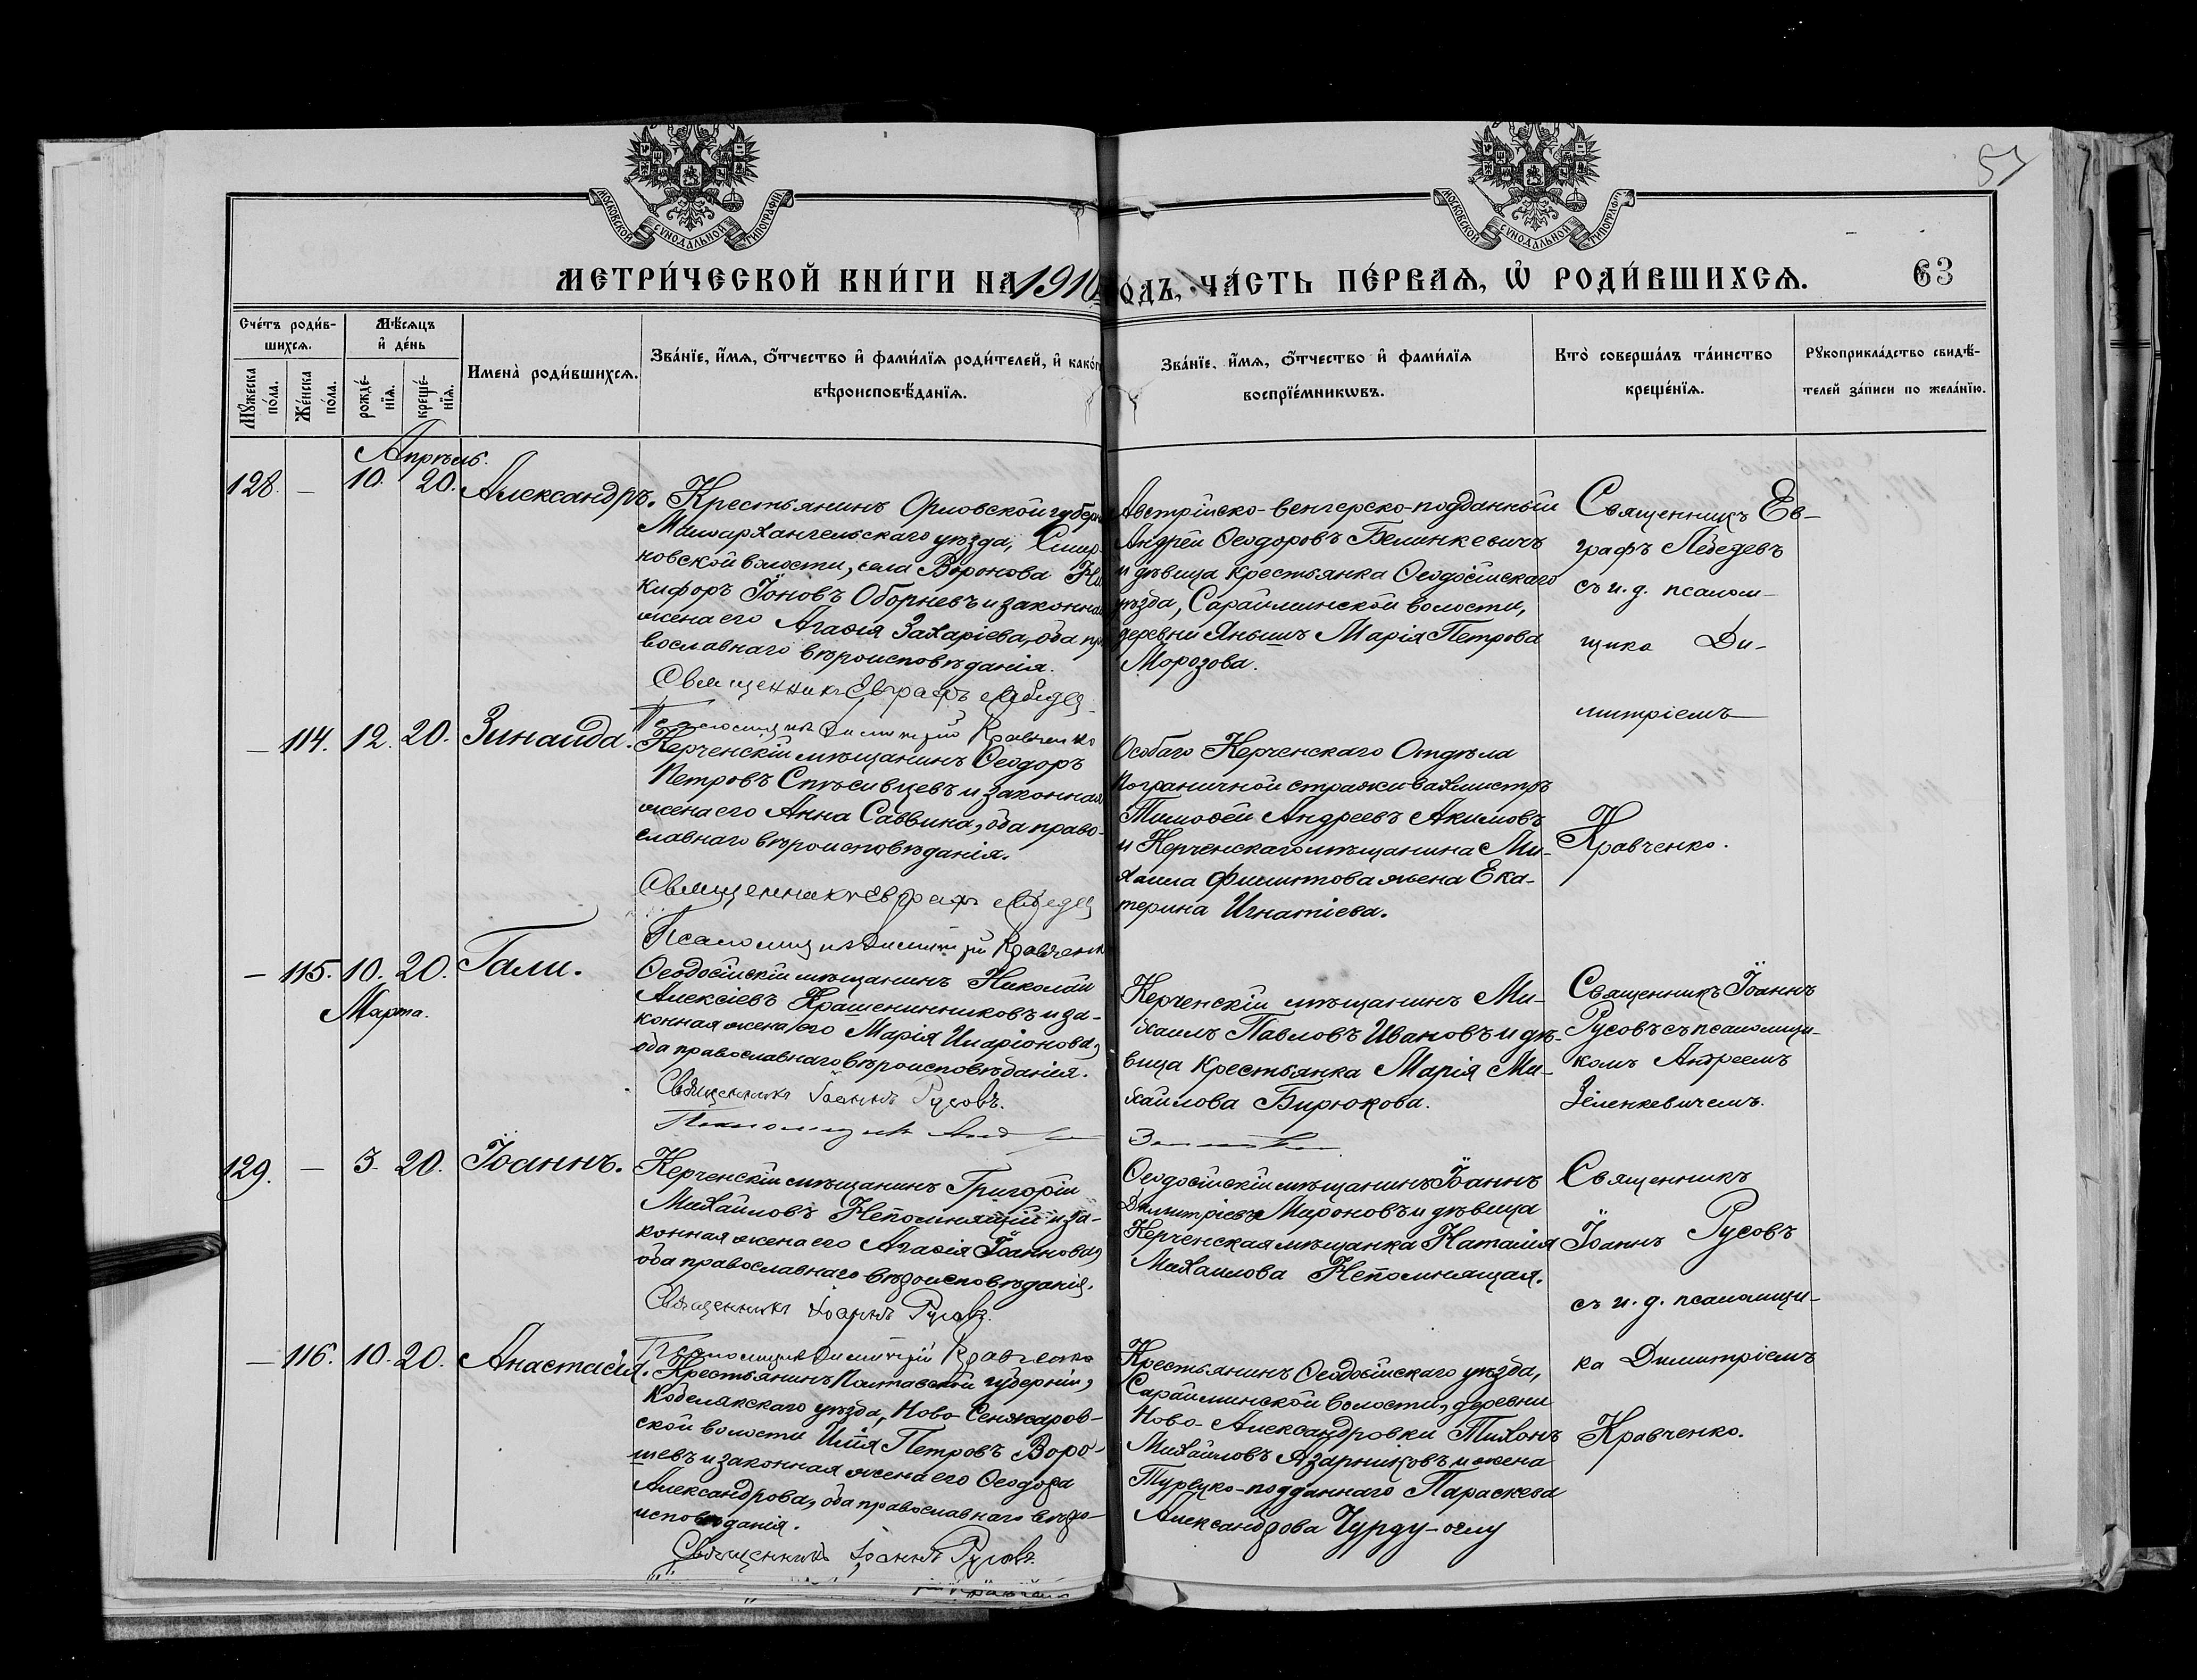 51
МОСКОВСКОЙ СѴНОДАЛЬНОЙ ТИПОГРАФІИ
МОСКОВСКОЙ СѴНОДАЛЬНОЙ ТИПОГРАФІИ
МЕТРИ́ЧЕСКОЙ КНИ́ГИ НА 1910 ГО́ДЪ, ЧА́СТЬ ПЕ́РВАѦ, Ѡ҆ РОДИ́ВШИХСѦ.
63
Сче́тъ роди́в-
шихсѧ.
Мꙋ́жеска
по́ла.
Же́нска
по́ла.
Мѣ́сѧцъ
и҆ де́нь
рожде́-
нїѧ.
креще́-
нїѧ.
Имена̀ роди́вшихсѧ.
Зва́нїе, и҆́мѧ, ѻ҆́тчество и҆ фами́лїѧ роди́телей, и҆ како́гѡ
вѣроисповѣ́данїѧ.
Зва́нїе, и҆́мѧ, ѻ҆́тчество и҆ фами́лїѧ
воспрїе́мникѡвъ.
Кто̀ соверша́лъ та́инство
креще́нїѧ.
Рꙋкоприкла́дство свидѣ́-
телей за́писи по жела́нїю.
Апрѣль.
128. — 10. 20. Александръ.
Крестьянинъ Орловской губерніи
Малоархангельскаго уѣзда, Смир-
новской волости, села Воронова Ни-
кифоръ Іоновъ Оборневъ и законная
жена его Агафія Захаріева, оба пра-
вославнаго вѣроисповѣданія.
Священникъ Евграфъ Лебедев
Псаломщикъ Димитрій Кравченко
Австрійско-венгерско-подданный
Андрей Ѳеодоровъ Белинкевичъ
и дѣвица крестьянка Ѳеодосійскаго
уѣзда, Сарайминской волости,
деревни Янышъ Марія Петрова
Морозова.
Священникъ Ев-
графъ Лебедевъ
съ и. д. псалом-
щика Ди-
митріемъ
Кравченко.
— 114. 12. 20. Зинаида.
Керченскій мѣщанинъ Ѳеодоръ
Петровъ Спѣсивцевъ и законная
жена его Анна Саввина, оба право-
славнаго вѣроисповѣданія.
Священникъ Евграфъ Лебедев
Псаломщикъ Димитрій Кравченко
Особаго Керченскаго Отдѣла
пограничной стражи вахмистръ
Тимофей Андреевъ Акимовъ
и Керченскаго мѣщанина Ми-
хаила Филиппова жена Ека-
терина Игнатіева.
— 115. 10. 20. Гали.
Марта.
Ѳеодосійскій мѣщанинъ Николай
Алексіевъ Крашенинниковъ и за-
конная жена его Марія Иларіонова,
оба православнаго вѣроисповѣданія.
Священникъ Іоаннъ Русовъ.
Псаломщикъ
Керченскій мѣщанинъ Ми-
хаилъ Павловъ Ивановъ и дѣ-
вица крестьянка Марія Ми-
хайлова Бирюкова.
Священникъ Іоаннъ
Русовъ съ псаломщи-
комъ Андреемъ
Зеленкевичемъ.
129. — 3. 20. Іоаннъ.
Керченскій мѣщанинъ Григорій
Михайловъ Непомнящій и за-
конная жена его Агафія Іоаннова,
оба православнаго вѣроисповѣданія.
Священникъ Іоаннъ Русовъ.
Псаломщикъ Димитрій Кравченко
Ѳеодосійскій мѣщанинъ Іоаннъ
Димитріевъ Мароновъ и дѣвица
Керченская мѣщанка Наталія
Михаилова Непомнящая.
Священникъ
Іоаннъ Русовъ
съ и. д. псаломщи-
ка Димитріемъ
Кравченко.
— 116. 10. 20. Анастасія.
Крестьянинъ Полтавской губерніи,
Кобелякскаго уѣзда, Ново-Сенжаров-
ской волости Илія Петровъ Воро-
шевъ и законная жена его Ѳеодора
Александрова, оба православнаго вѣро-
исповѣданія.
Священникъ Іоаннъ Русовъ.
Крестьянинъ Ѳеодосійскаго уѣзда,
Сарайминской волости, деревни
Ново-Александровки Тихонъ
Михайловъ Азарниковъ и жена
Турецко-подданнаго Параскева
Александрова Чурду-оглу